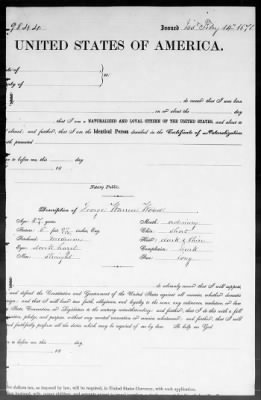 Issued
UNITED STATES OF AMERICA.
of
do swear that I was born
in                 on or about the        day
that I am a NATURALIZED AND LOYAL CITIZEN OF THE UNITED STATES, and about to
abroad; and further, that I am the Identical Person described in the Certificate of Naturalization
herewith presented
to before me this        day
18
Notary Public.
Description of George Warren Wood
Age: 57 years    Mouth: ordinary
Stature: 5 feet        inches Eng.    Chin: short
Forehead: medium    Hair: dark & thin
Eyes: dark hazel    Complexion: dark
Nose: straight    Face: long
do solemnly swear that I will support,
and defend the Constitution and Government of the United States against all enemies, whether domestic
or foreign; and that I will bear true faith, allegiance, and loyalty to the same, any ordinance, resolution or law
of any State, Convention or Legislature to the contrary notwithstanding; and further, that I do this with a full
determination, pledge, and purpose, without any mental reservation or evasion whatsoever; and further, that I will
well and faithfully perform all the duties which may be required of me by law. So help me God
to before me this        day
18
five dollars tax, as imposed by law, will be required, in United States Currency, with each application.